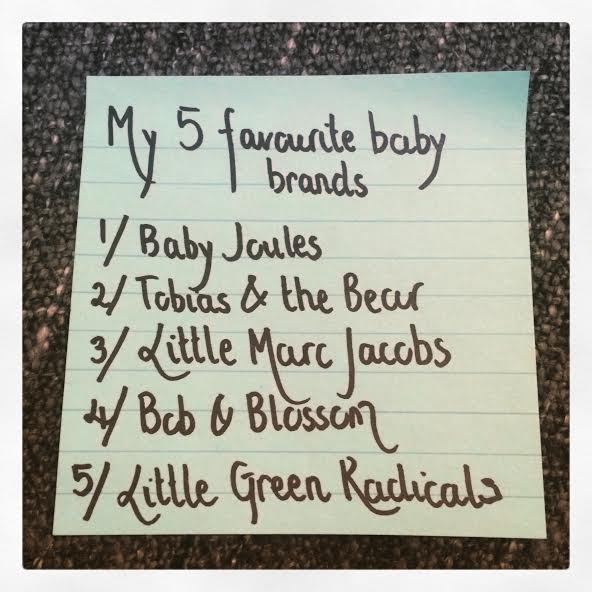 My 5 favourite baby
brands
1/ Baby Joules
2/ Tobias & the Bear
3/ Little Marc Jacobs
4/ Bob & Blossom
5/ Little Green Radicals